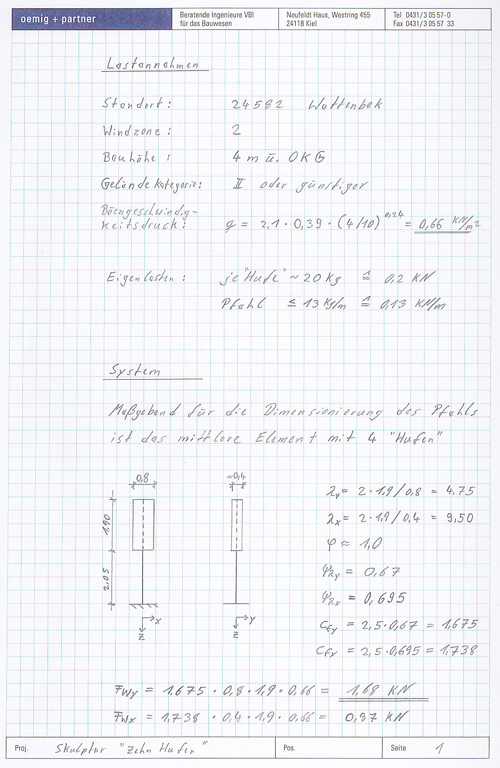 oemig + partner
Beratende Ingenieure VBI
für das Bauwesen
Neufeldt Haus, Westring 455
24118 Kiel
Tel 0431/3 05 57-0
Fax 0431/3 05 57 33
Lastannahmen
Standort: 24582 Wattenbek
Windzone: 2
Bauhöhe: 4 m ü. OKG
Geländekategorie: II oder günstiger
Böengeschwindig-
keitsdruck: q = 2,1 · 0,39 · (4/10)^0,24 = 0,66 KN/m²
Eigenlasten: je "Hufe" ~ 20 Kg ≙ 0,2 KN
Pfahl ≤ 13 Kg/m ≙ 0,13 KN/m
System
Maßgebend für die Dimensionierung des Pfahls
ist das mittlere Element mit 4 "Hufen"
0,8 ~0,4
λy = 2 · 1,9 / 0,8 = 4,75
1,90
λx = 2 · 1,9 / 0,4 = 9,50
φ ≈ 1,0
2,05
ψλy = 0,67
ψλx = 0,695
x y
cfy = 2,5 · 0,67 = 1,675
z z
cfx = 2,5 · 0,695 = 1,738
Fwy = 1,675 · 0,8 · 1,9 · 0,66 = 1,68 KN
Fwx = 1,738 · 0,4 · 1,9 · 0,66 = 0,87 KN
Proj. Skulptur "Zehn Hufen" Pos. Seite 1